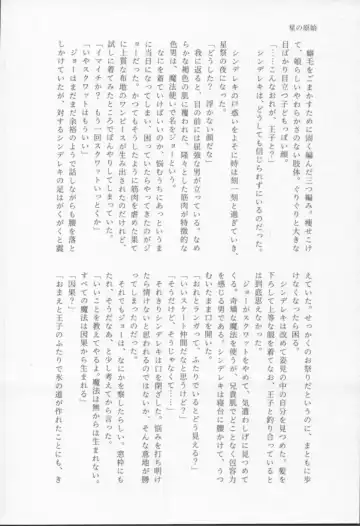 星の原始
癖毛をごまかすために固く編んだ三つ編み。痩せこけ
て、娘らしいやわらかさのない肢体。ぐりぐりと大きな
目ばかり目立つ子どもっぽい顔。
「……こんなおれが、王子と？」
シンデレキは、どうしても信じられずにいるのだった。
シンデレキの戸惑いをよそに時は刻一刻と過ぎていき、
星祭の夜になった。
「どうした、浮かない顔だな」
我に返ると、目の前には屈強な男が立っている。なめ
らかな褐色の肌に覆われた、隆々とした筋肉が特徴的な
色男は、魔法使いで名をジョーという。
なにを着ていけばいいのか、悩むうちにあっというま
に当日になってしまい、困っていたらやってきたのがジ
ョーだった。かつてもそうしたように筋肉を虐めた果て
に上質な布地のワンピースが生み出されたのだけれど、
試しに着てみたところでぼんやりしてしまっていた。
「イマイチか？　もう一回スクワットいっとくか」
「いやスクワットはもういい」
ジョーはまだまだ余裕のようで話しながらも腰を落と
しかけていたが、対するシンデレキの足はがくがくと震
えていた。せっかくのお祭りだというのに、まともに歩
けなくなったら困る。
シンデレキは改めて姿見の中の自分を見つめた。髪を
下ろして上等な服を着てなお、王子と釣り合っていると
は到底思えなかった。
ジョーがスクワットをやめて、気遣わしげに見つめて
くる。奇矯な魔法を使うが、兄貴肌でどことなく包容力
を感じる男である。シンデレキは寝台に腰かけて、うつ
むいたまま口を開いた。
「おれとランガって、ふたりでいるとどう見える？」
「いいスケート仲間だなと思うけど？」
「そうだけど、そうじゃなくて……」
それきりシンデレキは口を閉ざした。悩みを打ち明け
たら情けないと思われるのではないか、そんな意地が勝
ってしまったのだった。
それでもジョーは、なにかを察したらしい。窓枠にも
たれ、そうだなあ、と少し考えてから言った。
「いいことを教えてやるよ。魔法は無からは生まれない。
すべての魔法は因果から生まれる」
「因果？」
「おまえと王子のふたりで氷の道が作れたことにも、き